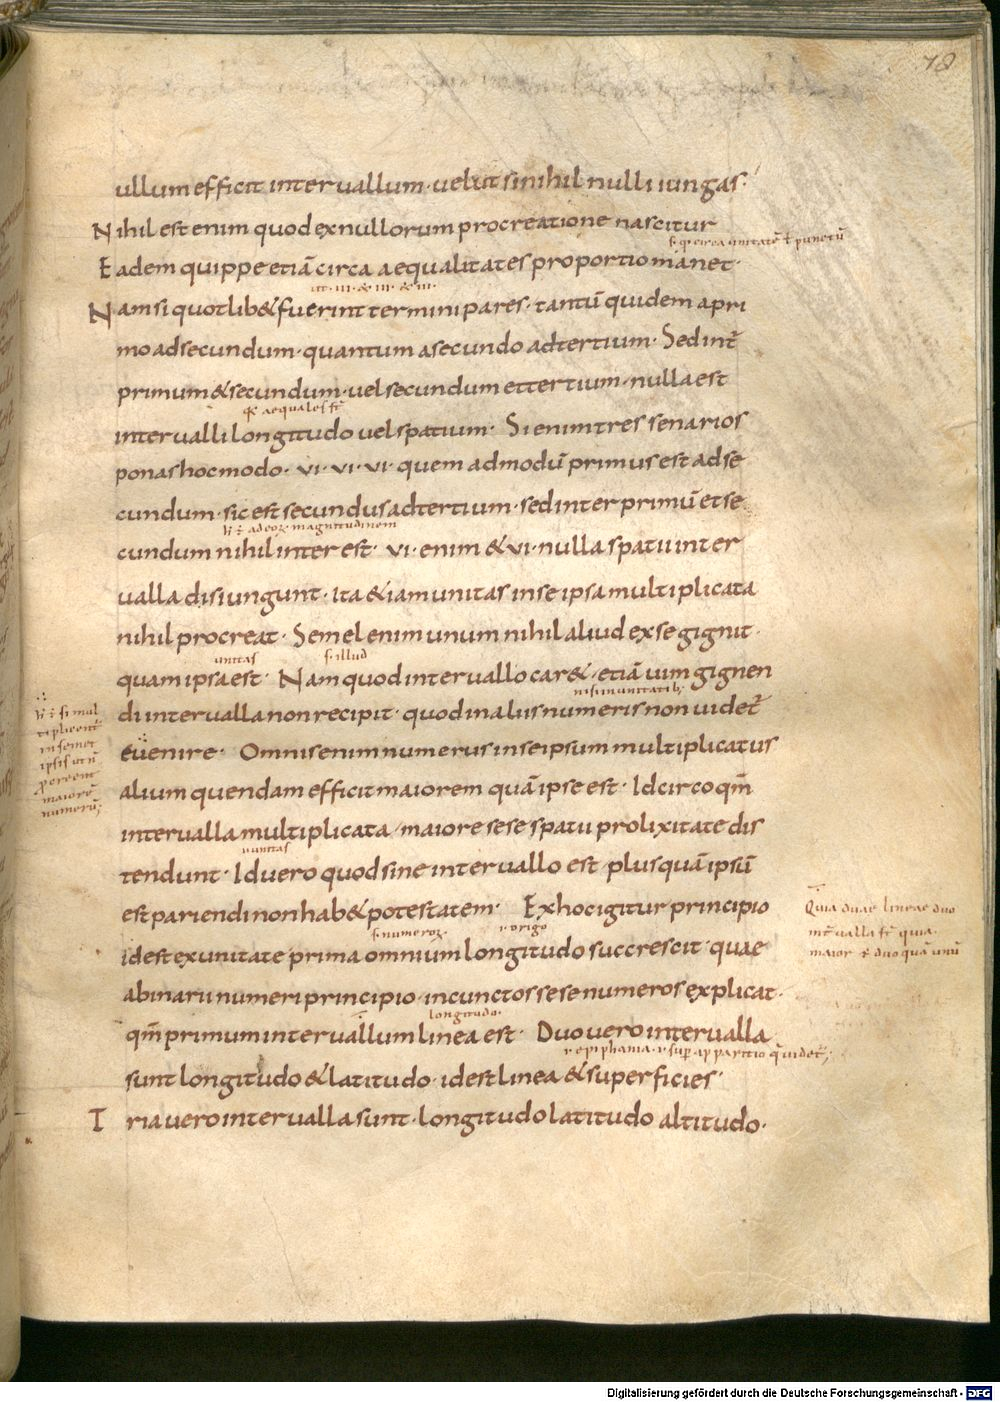 78
ullum efficit intervallum · velut si nihil nulli iungas ·
Nihil est enim quod ex nullorum procreatione nascitur
circa unitatē punctū
Eadem quippe etiā circa aequalitates proportio manet ·
ut · III · & III · & III ·
Nam si quotlib& fuerint termini pares · tantū quidem a pri
mo ad secundum · quantum a secundo ad tertium · Sed int̄
primum & secundum · vel secundum et tertium · nulla est
aequales st̄
intervalli longitudo vel spatium · Si enim tres senarios
ponas hoc modo · VI · VI · VI · quem ad modū primus est ad se
cundum · sic est secundus ad tertium · sed inter primū et se
magnitudinem
cundum nihil interest · VI · enim & VI · nulla spatii inter
valla disiungunt · ita & iam unitas in se ipsa multiplicata
nihil procreat · Semel enim unum nihil aliud ex se gignit ·
unitas s · illud
quam ipsa est · Nam quod intervallo car& · etiā vim gignen
nisi in unitatib;
di intervalla non recipit · quod in aliis numeris non videt̄
evenire · Omnis enim numerus in se ipsum multiplicatus
alium quendam efficit maiorem quā ipse est · Idcirco qm̄
intervalla multiplicata / maiore sese spatii prolixitate dis
unitas
tendunt · Id vero quod sine intervallo est · plus quā ipsū
est pariendi non hab& potestatem · Ex hoc igitur principio
s · numeroꝝ · origo
id est ex unitate prima omnium longitudo succrescit · quae
a binarii numeri principio · in cunctos sese numeros explicat ·
longitudo ·
qm̄ primum intervallum linea est · Duo vero intervalla
epiphania
sunt longitudo & latitudo · id est linea & superficies ·
Tria vero intervalla sunt · longitudo latitudo altitudo ·
si mul
in semet
ipsis
maiorē
numerū;
Quia duae lineae duo
int̄valla st̄ quia ·
maior ē duo quā unū
Digitalisierung gefördert durch die Deutsche Forschungsgemeinschaft - DFG